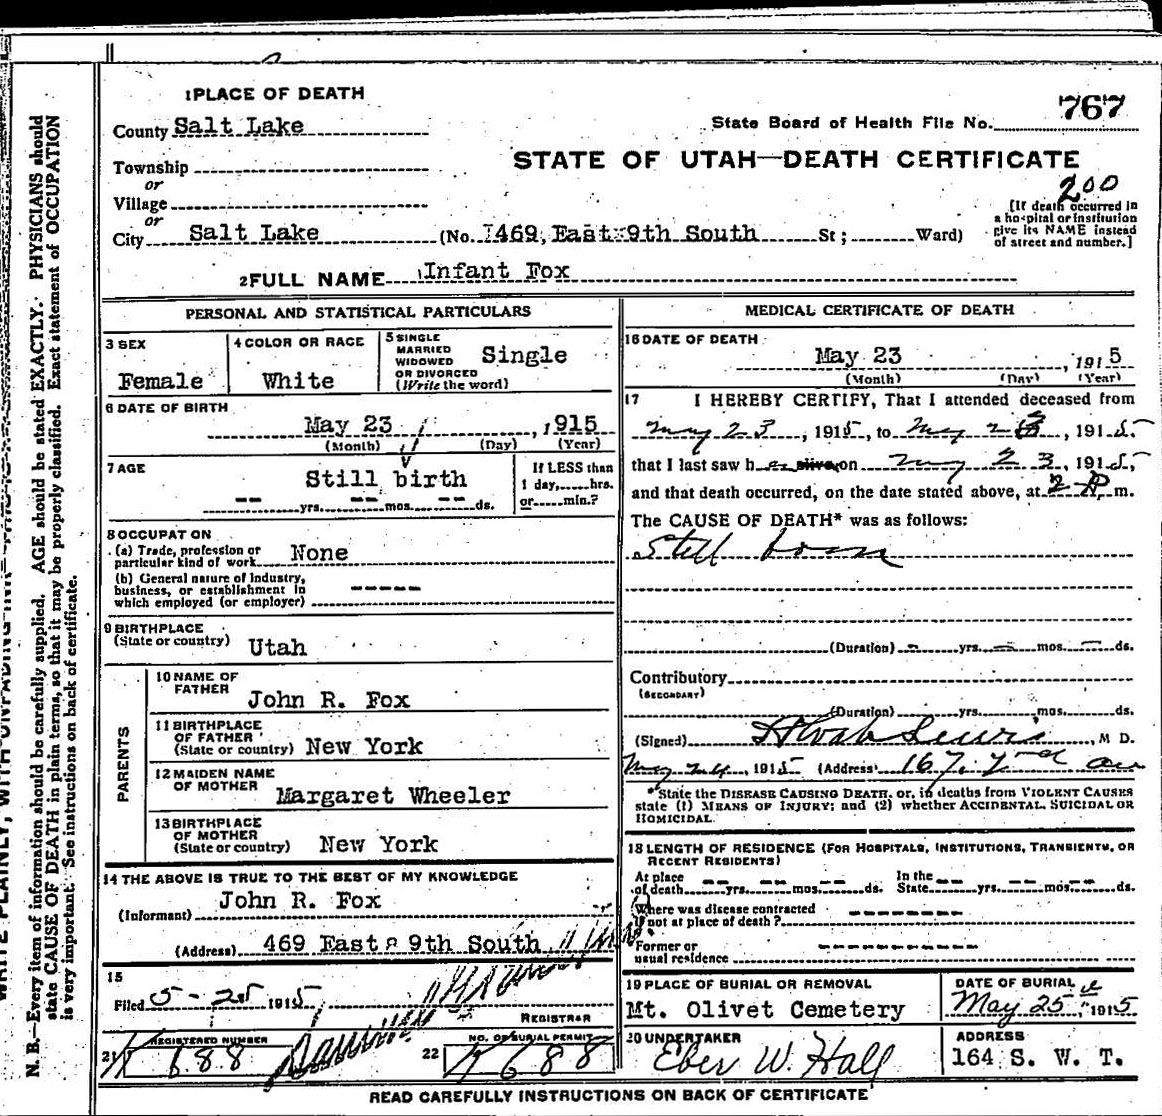 1 PLACE OF DEATH
County Salt Lake
Township
or
Village
or
City Salt Lake (No. 469, East 9th South St; Ward)
State Board of Health File No. 767
STATE OF UTAH—DEATH CERTIFICATE
200
[If death occurred in
a hospital or institution
give its NAME instead
of street and number.]
2 FULL NAME Infant Fox
PERSONAL AND STATISTICAL PARTICULARS
3 SEX
Female
4 COLOR OR RACE
White
5 SINGLE
MARRIED
WIDOWED
OR DIVORCED
(Write the word)
Single
6 DATE OF BIRTH
May 23, 1915
(Month) (Day) (Year)
7 AGE
Still birth
-- yrs. -- mos. -- ds.
If LESS than
1 day, hrs.
or min.?
8 OCCUPATION
(a) Trade, profession or
particular kind of work None
(b) General nature of Industry,
business, or establishment in
which employed (or employer)
9 BIRTHPLACE
(State or country) Utah
PARENTS
10 NAME OF
FATHER
John R. Fox
11 BIRTHPLACE
OF FATHER
(State or country) New York
12 MAIDEN NAME
OF MOTHER
Margaret Wheeler
13 BIRTHPLACE
OF MOTHER
(State or country) New York
14 THE ABOVE IS TRUE TO THE BEST OF MY KNOWLEDGE
(Informant) John R. Fox
(Address) 469 East 9th South
15
Filed 5-25 1915
REGISTRAR
21 REGISTERED NUMBER
K 688
22 NO. OF BURIAL PERMIT
K 688
MEDICAL CERTIFICATE OF DEATH
16 DATE OF DEATH
May 23, 1915
(Month) (Day) (Year)
17 I HEREBY CERTIFY, That I attended deceased from
May 23, 1915, to May 23, 1915,
that I last saw her alive on May 23, 1915,
and that death occurred, on the date stated above, at 2 P m.
The CAUSE OF DEATH* was as follows:
Still born
(Duration) - yrs. - mos. - ds.
Contributory
(SECONDARY)
(Duration) yrs. mos. ds.
(Signed) Lewis, M D.
May 24, 1915 (Address) 167. 7
*State the DISEASE CAUSING DEATH, or, in deaths from VIOLENT CAUSES
state (1) MEANS OF INJURY; and (2) whether ACCIDENTAL, SUICIDAL OR
HOMICIDAL.
18 LENGTH OF RESIDENCE (FOR HOSPITALS, INSTITUTIONS, TRANSIENTS, OR
RECENT RESIDENTS)
At place
of death -- yrs. -- mos. -- ds.
In the
State -- yrs. -- mos. -- ds.
Where was disease contracted
if not at place of death?
Former or
usual residence
19 PLACE OF BURIAL OR REMOVAL
Mt. Olivet Cemetery
DATE OF BURIAL
May 25, 1915
20 UNDERTAKER
Eber W. Hall
ADDRESS
164 S. W. T.
READ CAREFULLY INSTRUCTIONS ON BACK OF CERTIFICATE
N. B.—Every item of information should be carefully supplied. AGE should be stated EXACTLY. PHYSICIANS should
state CAUSE OF DEATH in plain terms, so that it may be properly classified. Exact statement of OCCUPATION
is very important. See instructions on back of certificate.